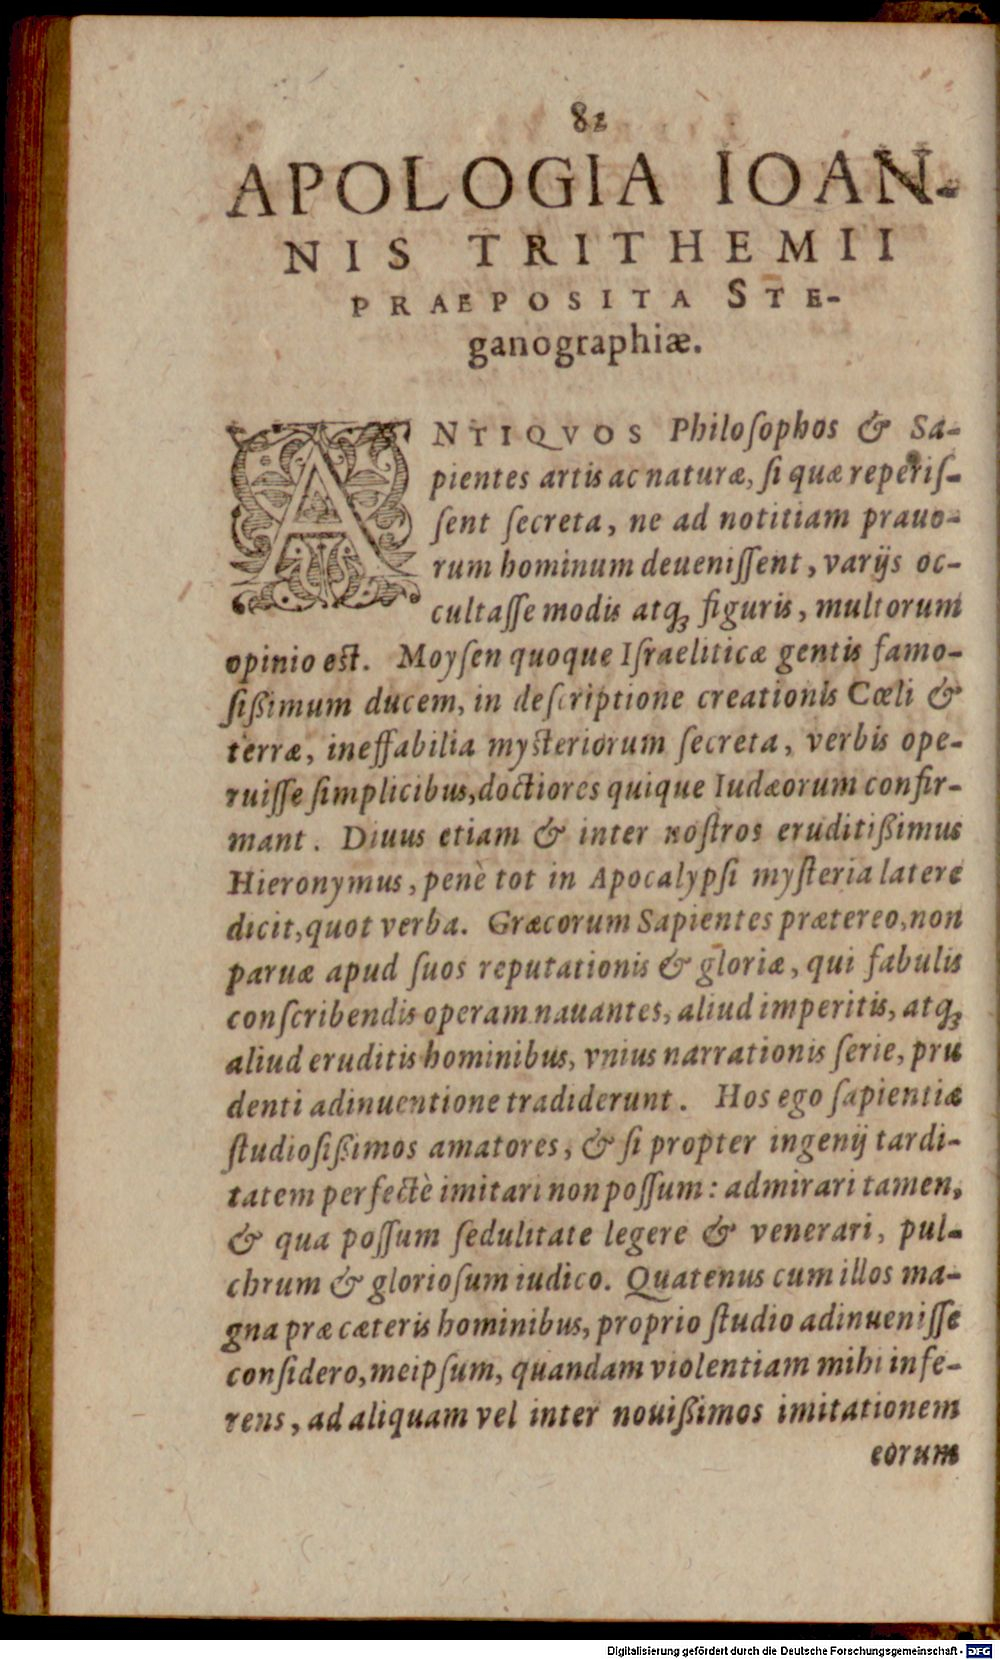 82
APOLOGIA IOAN-
NIS TRITHEMII
PRAEPOSITA STE-
ganographiæ.
ANTIQVOS Philoſophos & Sa-
pientes artis ac naturæ, ſi quæ reperiſ-
ſent ſecreta, ne ad notitiam prauo-
rum hominum deueniſſent, varijs oc-
cultaſſe modis atq₃ figuris, multorum
opinio est. Moyſen quoque Iſraeliticæ gentis famo-
ſißimum ducem, in deſcriptione creationis Cœli &
terræ, ineffabilia mysteriorum ſecreta, verbis ope-
ruiſſe ſimplicibus, doctiores quique Iudæorum confir-
mant. Diuus etiam & inter noſtros eruditißimus
Hieronymus, penè tot in Apocalypſi myſteria latere
dicit, quot verba. Græcorum Sapientes prætereo, non
paruæ apud ſuos reputationis & gloriæ, qui fabulis
conſcribendis operam nauantes, aliud imperitis, atq₃
aliud eruditis hominibus, vnius narrationis ſerie, pru
denti adinuentione tradiderunt. Hos ego ſapientiæ
ſtudioſißimos amatores, & ſi propter ingenij tardi-
tatem perfectè imitari non poſſum: admirari tamen,
& qua poſſum ſedulitate legere & venerari, pul-
chrum & glorioſum iudico. Quatenus cum illos ma-
gna præ cæteris hominibus, proprio ſtudio adinueniſſe
conſidero, meipſum, quandam violentiam mihi infe-
rens, ad aliquam vel inter nouißimos imitationem
eorum
Digitalisierung gefördert durch die Deutsche Forschungsgemeinschaft - DFG